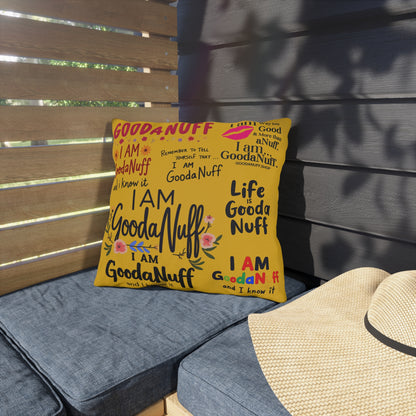 GOODANUFF
I AM
GoodaNuff
and I know it
REMEMBER TO TELL
YOURSELF THAT...
I AM
GoodaNuff
I am
Good
& More than
aNuff.
I am
GoodaNuff.
Life
IS
Gooda
Nuff
I AM
GoodaNuff
I AM
GoodaNuff
and I know it
I AM
GoodaN ff
and I know it